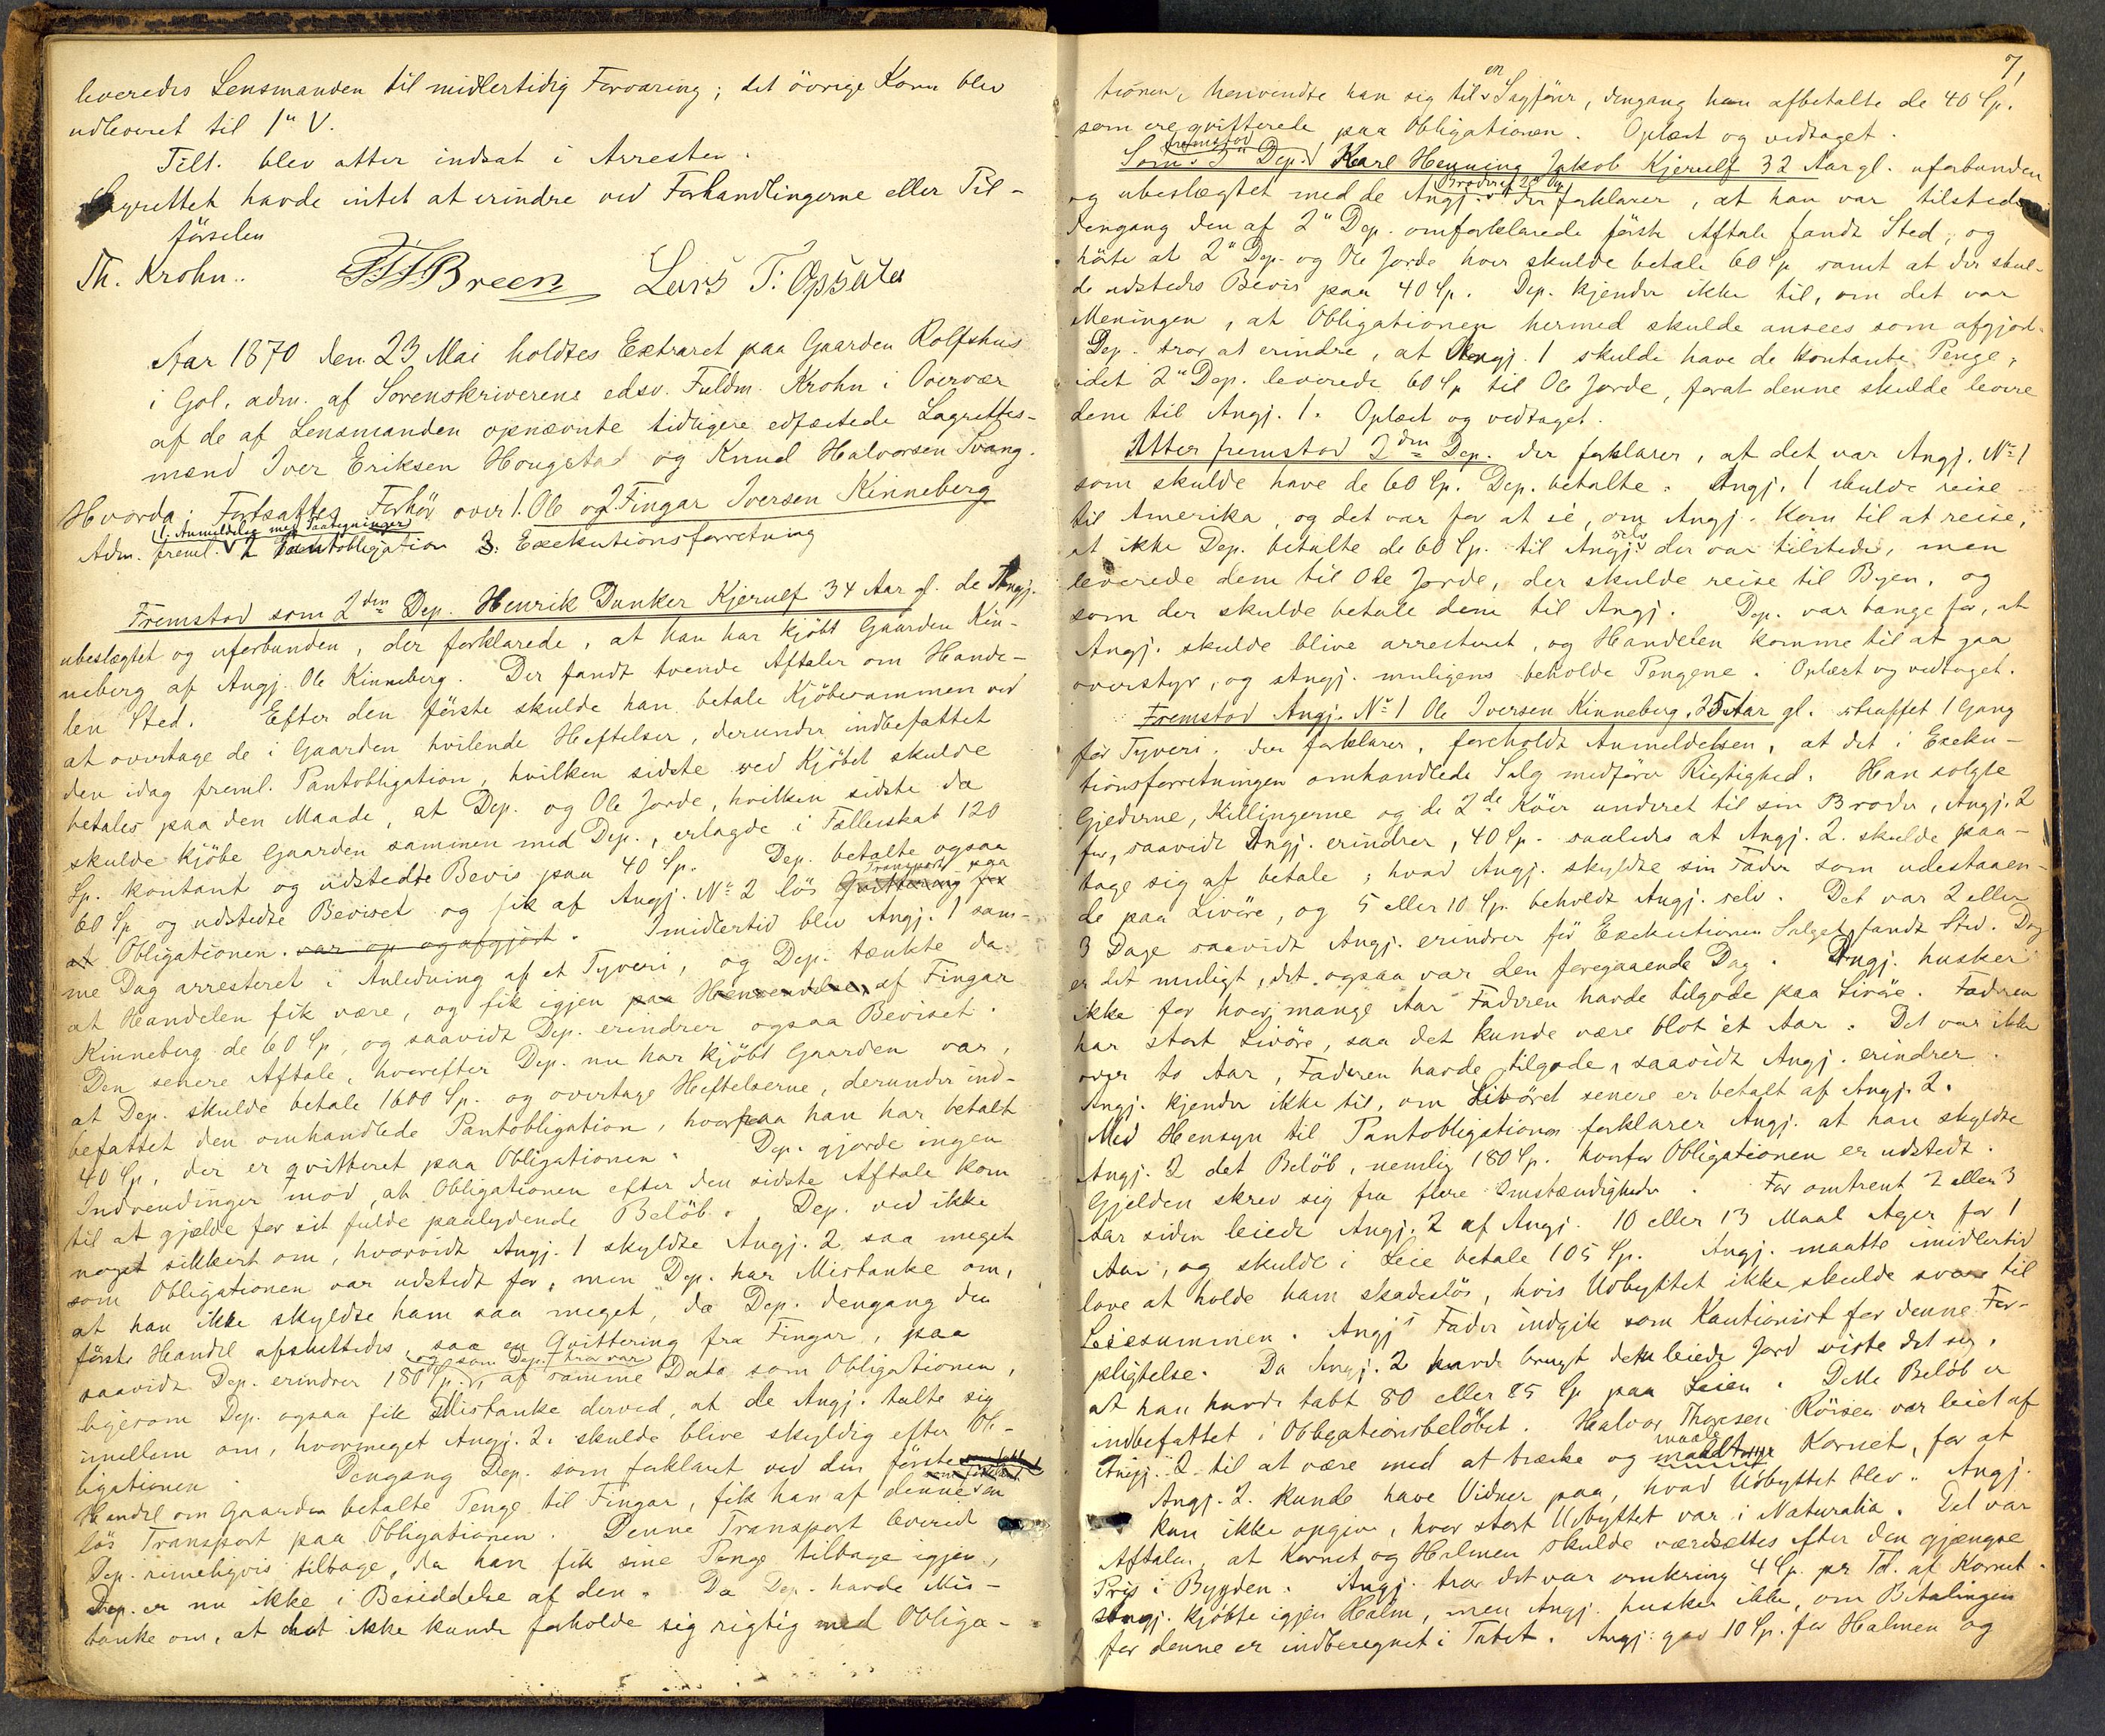 leveredes Lensmanden til midlertidig Forvaring; det övrige Korn blev
udleveret til 1" V.
Tilt. blev atter indsat i Arresten.
Lagrettet havde intet at erindre ved Forhandlingerne eller Til-
förselen
Th. Krohn.. Breen Lars T. Opsata
Aar 1870 den 23 Mai holdtes Extraret paa Gaarden Rolfshus
i Gol, adm. af Sorenskriverens edsv. Fuldm. Krohn i Overvær
af de af Lensmanden opnævnte tidligere edfæstede Lagrettes-
mænd Iver Eriksen Hougstad og Knud Halvorsen Svang.
Hvorda: Fortsattes Forhör over 1. Ole og 2 Fingar Iversen Kinneberg
1. Anmeldelse med Paategninger
Adm. freml. 2 Pantobligation 3. Exekutionsforretning
Fremstod som 2den Dep. Henrik Dunker Kjerulf 34 Aar gl. de Angj.
ubeslægtet og uforbunden, der forklarede, at han har kjöbt Gaarden Kin-
neberg af Angj. Ole Kinneberg. Der fandt tvende Aftaler om Hande-
len Sted. Efter den förste skulde han betale Kjöbesummen ved
at overtage de i Gaarden hvilende Heftelser, derunder indbefattet
den idag freml. Pantobligation, hvilken sidste ved Kjöbet skulde
betales paa den Maade, at Dep. og Ole Jorde, hvilken sidste da
skulde kjöbe Gaarden sammen med Dep., erlagde i Fælleskab 120
Sp. kontant og udstedte Bevis paa 40 Sp. Dep. betalte ogsaa
Transport paa
60 Sp og udstedte Beviset og fik af Angj. No 2 lös Qvittering for
at Obligationen. var op og afgjort. Imidlertid blev Angj. 1 sam-
me Dag arresteret i Anledning af et Tyveri, og Dep. tænkte da
at Handelen fik være, og fik igjen paa Henvendelse, af Fingar
Kinneberg de 60 Sp, og saavidt Dep. erindrer ogsaa Beviset.
Den senere Aftale, hvorefter Dep. nu har kjöbt Gaarden var,
at Dep. skulde betale 1600 Sp. og overtage Heftelserne, derunder ind-
befattet den omhandlede Pantobligation, hvorpaa han har betalt
40 Sp, der er qvitteret paa Obligationen. Dep. gjorde ingen
Indvendinger mod, at Obligationen efter den sidste Aftale kom
til at gjælde for sit fulde paalydende Belöb. Dep. ved ikke
noget sikkert om, hvorvidt Angj. 1 skyldte Angj. 2 saa meget
som Obligationen var udstedt for, men Dep. har Mistanke om,
at han ikke skyldte ham saa meget, da Dep. dengang den
förste Handel afsluttedes, saa en Qvittering fra Fingar, paa
og som Dep. tror var
saavidt Dep. erindrer 180 Sp. af samme Dato som Obligationen,
ligesom Dep. ogsaa fik Mistanke derved, at de Angj. talte sig
imellem om, hvormeget Angj. 2. skulde blive skyldig efter Ob-
ligationen Dengang Dep. som forklaret ved den förste
Handel om Gaarden betalte Penge til Fingar, fik han af denne en
lös Transport paa Obligationen. Denne Transport leverede
Dep. rimeligvis tilbage, da han fik sine Penge tilbage igjen,
Dep. er nu ikke i Besiddelse af den. Da Dep. havde Mis-
tanke om, at det ikke kunde forholde sig rigtig med Obliga-
7,
en
tionen, henvendte han sig til Sagförer, dengang han afbetalte de 40 Sp.
som ere qvitterede paa Obligationen. Oplæst og vedtaget.
fremstod
Som 3" Dep. Karl Henning Jakob Kjerulf 32 Aar gl. uforbunden
Broder af 2" Dep
og ubeslægtet med de Angj. der forklarer, at han var tilstede
dengang den af 2" Dep. omforklarede förste Aftale fandt Sted, og
hörte at 2" Dep. og Ole Jorde hver skulde betale 60 Sp samt at der skul-
de udstedes Bevis paa 40 Sp. Dep. kjender ikke til, om det var
Meningen, at Obligationen hermed skulde ansees som afgjort.
Dep. tror at erindre, at Angj. 1 skulde have de kontante Penge,
idet 2" Dep. leverede 60 Sp til Ole Jorde, forat denne skulde levere
dem til Angj. 1. Oplæst og vedtaget.
Atter fremstod 2den Dep. der forklarer, at det var Angj. No 1
som skulde have de 60 Sp. Dep. betalte. Angj. 1 skulde reise
til Amerika, og det var for at se, om Angj. kom til at reise,
selv
at ikke Dep. betalte de 60 Sp. til Angj. der var tilstede, men
leverede dem til Ole Jorde, der skulde reise til Byen, og
som der skulde betale dem til Angj. Dep. var bange for, at
Angj. skulde blive arresteret, og Handelen komme til at gaa
overstyr, og Angj. muligens beholde Pengene. Oplæst og vedtaget.
Fremstod Angj. No 1 Ole Iversen Kinneberg. 25 Aar gl. straffet 1 Gang
for Tyveri. der forklarer, foreholdt Anmeldelsen, at det i Exeku-
tionsforretningen omhandlede Salg medförer Rigtighed. Han solgte
Gjederne, Killingerne og de 2de Köer underet til sin Broder, Angj. 2
for, saavidt Angj. erindrer, 40 Sp. saaledes at Angj. 2. skulde paa-
tage sig at betale, hvad Angj. skyldte sin Fader som udestaaen-
de paa Livöre, og 5 eller 10 Sp. beholdt Angj. selv. Det var 2 eller
3 Dage saavidt Angj. erindrer för Exekutionen Salget fandt Sted. Dog
er det muligt, det ogsaa var den foregaaende Dag. Angj. husker
ikke for hvor mange Aar Faderen havde tilgode paa Livöre. Faderen
har stort Livöre, saa det kunde være blot et Aar. Det var ikke
over to Aar, Faderen havde tilgode, saavidt Angj. erindrer.
Angj. kjender ikke til, om Livöret senere er betalt af Angj. 2.
Med Hensyn til Pantobligationen forklarer Angj. at han skyldte
Angj. 2 det Belöb, nemlig 180 Sp. hvorfor Obligationen er udstedt.
Gjelden skrev sig fra flere Omstændigheder. For omtrent 2 eller 3
Aar siden leiede Angj. 2 af Angj. 10 eller 13 Maal Ager for 1
Aar, og skulde i Leie betale 105 Sp. Angj. maatte imidlertid
love at holde ham skadeslös, hvis Udbyttet ikke skulde svare til
Leiesummen. Angjs Fader indgik som Kautionist for denne For-
pligtelse. Da Angj. 2 havde brugt den leiede Jord viste det sig,
at han havde tabt 80 eller 85 Sp paa Leien. Dette Belöb er
indbefattet i Obligationsbelöbet. Halvor Thoresen Röisen var leiet af
maale
Angj. 2 til at være med at træske og Kornet, for at
Angj. 2. kunde have Vidner paa, hvad Udbyttet blev. Angj.
kan ikke opgive, hvor stort Udbyttet var i Naturalia. Det var
Aftalen, at Kornet og Halmen skulde værdsettes efter den gjængse
Pris i Bygden. Angj. tror det var omkring 4 Sp. pr Td. af Kornet.
Angj. kjöbte igjen Halm, men Angj. husker ikke, om Betalingen
for denne er indberegnet i Tabet. Angj: gav 10 Sp. for Halmen og